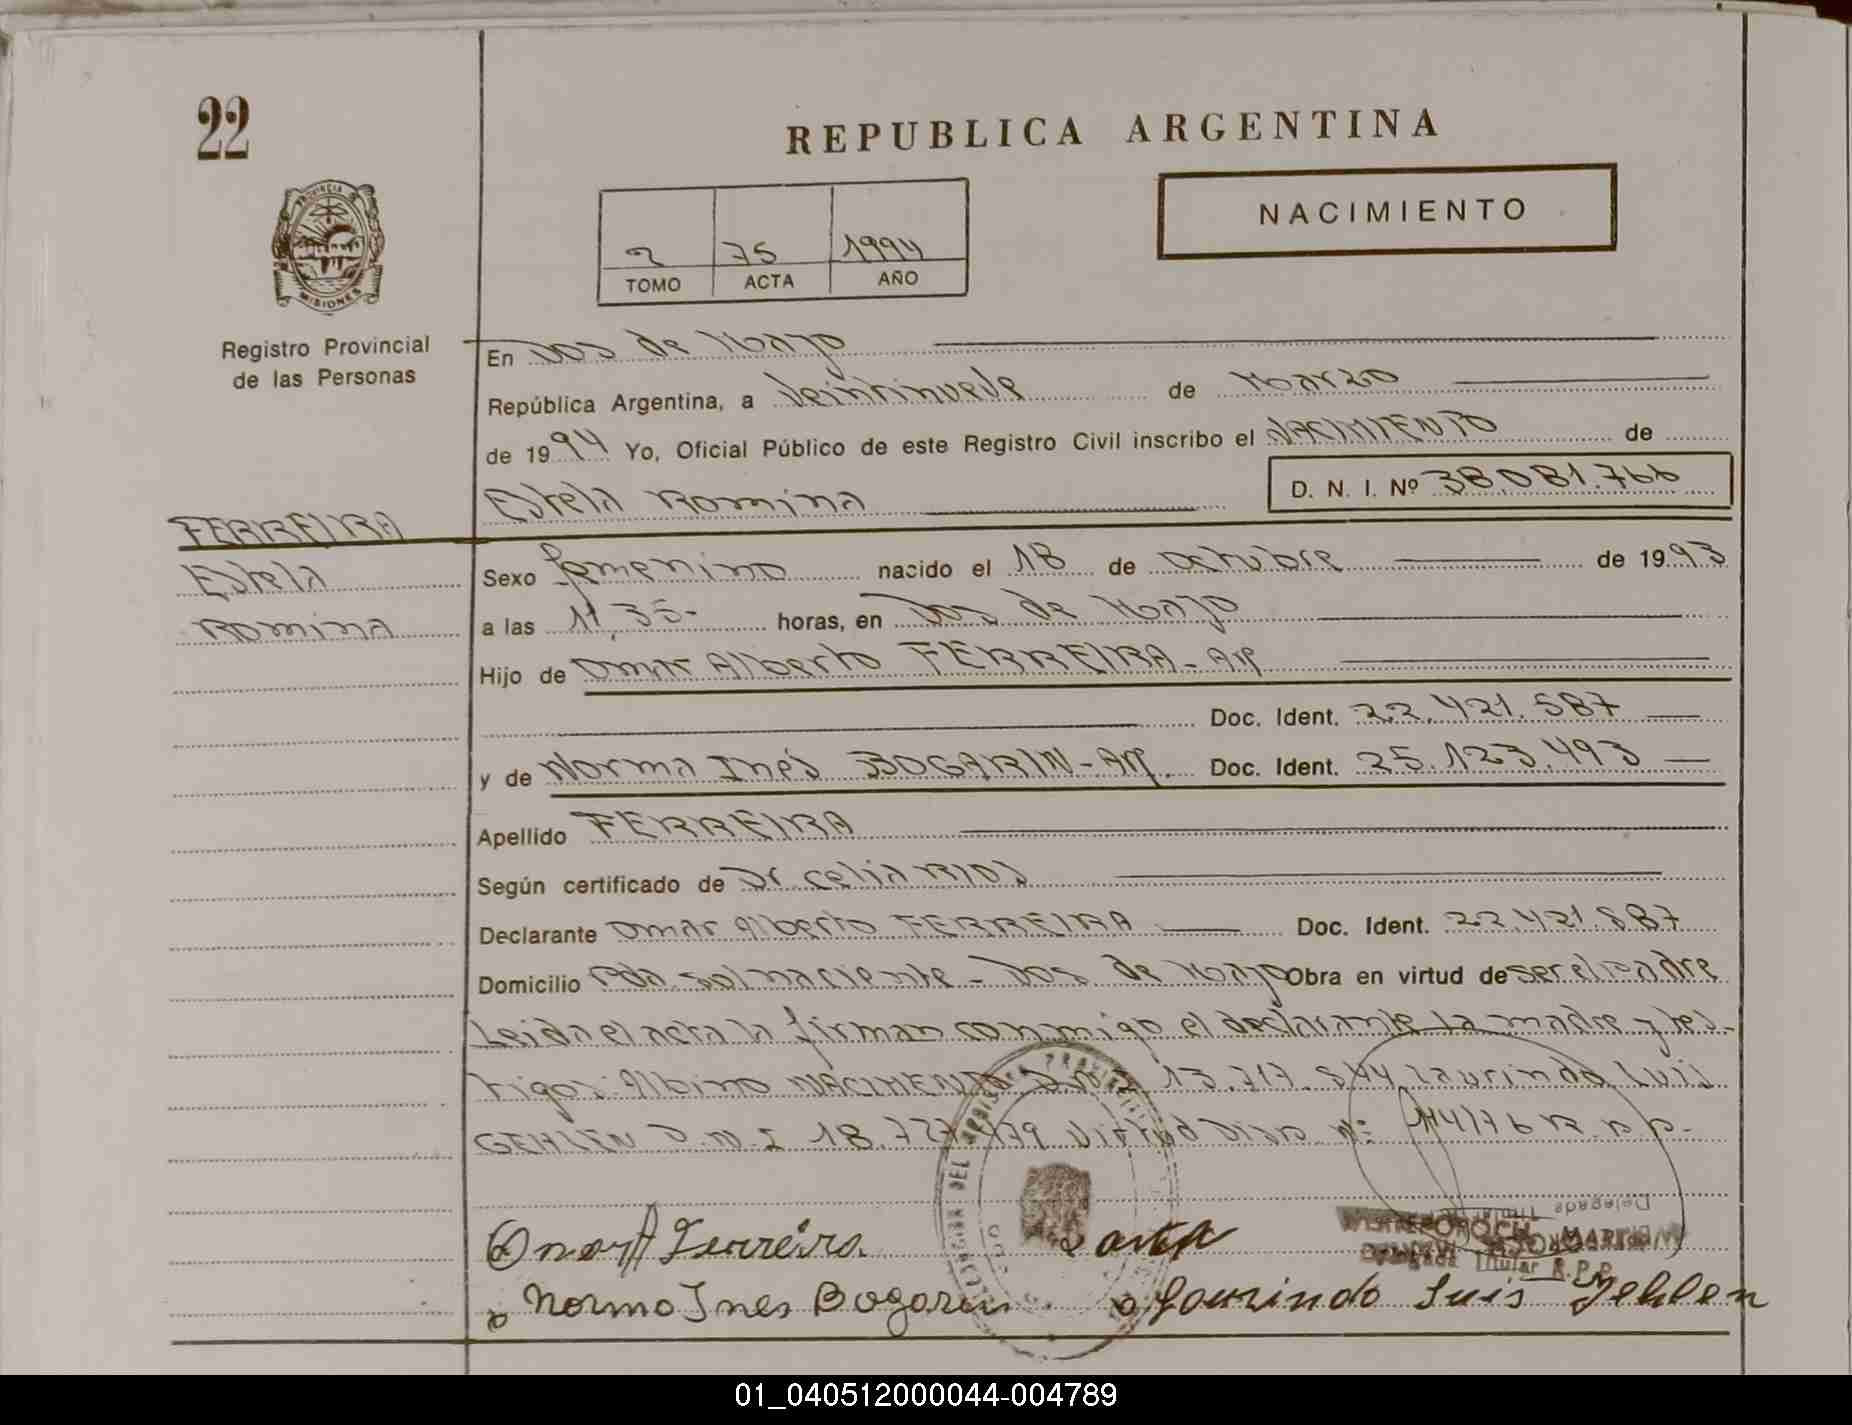 22
REPUBLICA ARGENTINA
NACIMIENTO
2 75 1994
TOMO ACTA AÑO
PROVINCIA
MISIONES
Registro Provincial
de las Personas
En Dos de Mayo
República Argentina, a Veintinueve de Marzo
de 1994 Yo, Oficial Público de este Registro Civil inscribo el NACIMIENTO de
Estela Romina D. N. I. Nº 38.081.766
FERREIRA
Estela
Romina
Sexo femenino nacido el 18 de octubre de 1993
a las 11,35- horas, en Dos de Mayo
Hijo de Omar Alberto FERREIRA - Arg
Doc. Ident. 22.421.587
y de Norma Inés BOGARIN - Arg. Doc. Ident. 25.123.493
Apellido FERREIRA
Según certificado de Dr celia RIOS
Declarante Omar Alberto FERREIRA Doc. Ident. 22.421.587
Domicilio Pda. sol naciente - Dos de Mayo Obra en virtud de ser el padre
Leida el acta la firman conmigo el declarante la madre y tes-
tigos: Albino NACIMENTO D.N.I 13.717.544 Laurindo Luis
GEHLEN D.N.I 18.727.479 Virtud Disp nº 114/76 R.P.P.
Omar A Ferreira
Delegada Titular R.P.P.
Norma Ines Bogarin Lourindo Luis Gehlen
01_040512000044-004789